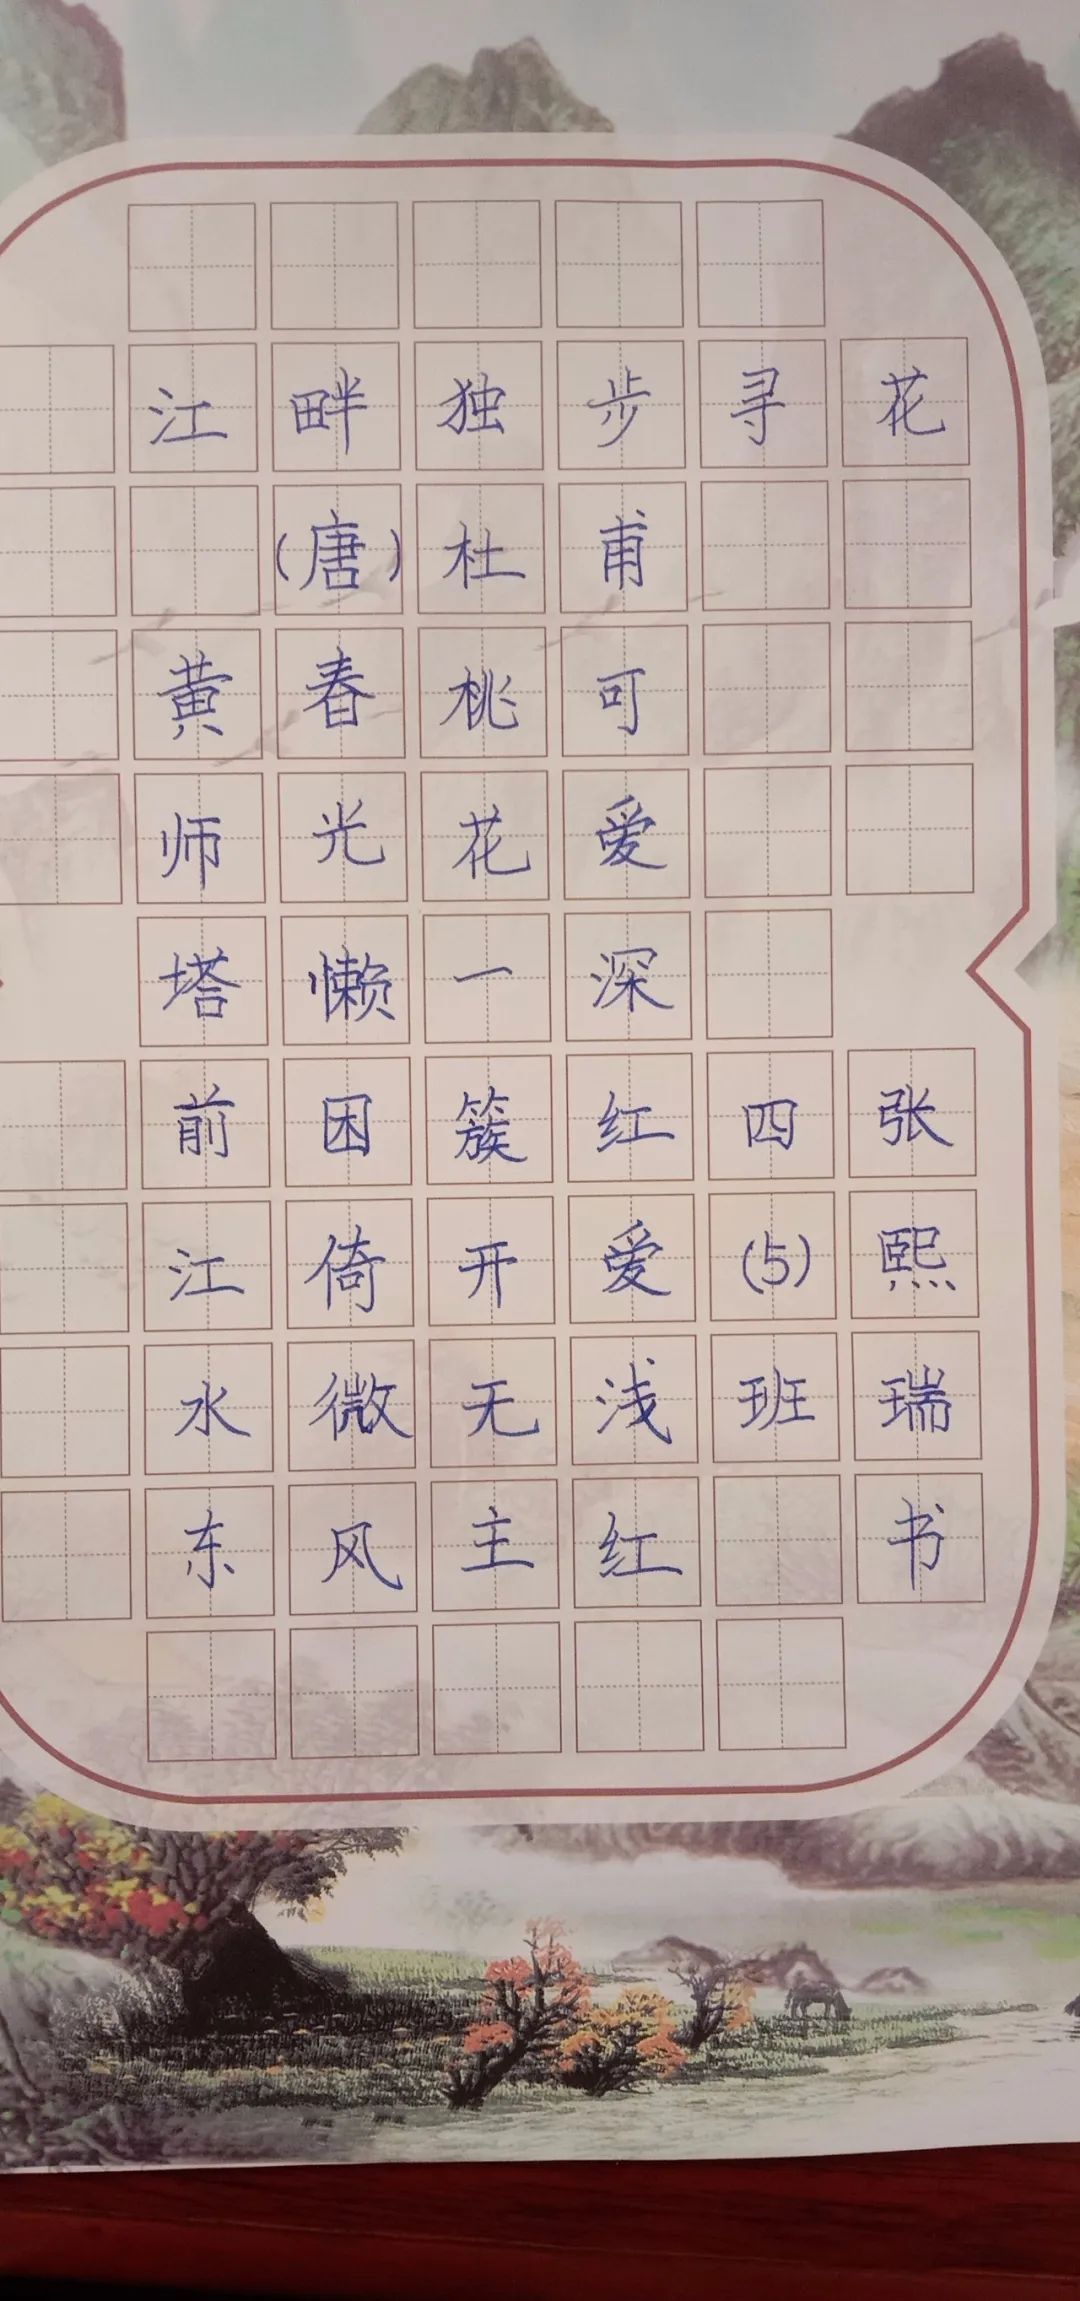 江畔独步寻花
(唐)杜甫
黄师塔前江水东
春光懒困倚微风
桃花一簇开无主
可爱深红爱浅红
四(5)班
张熙瑞书